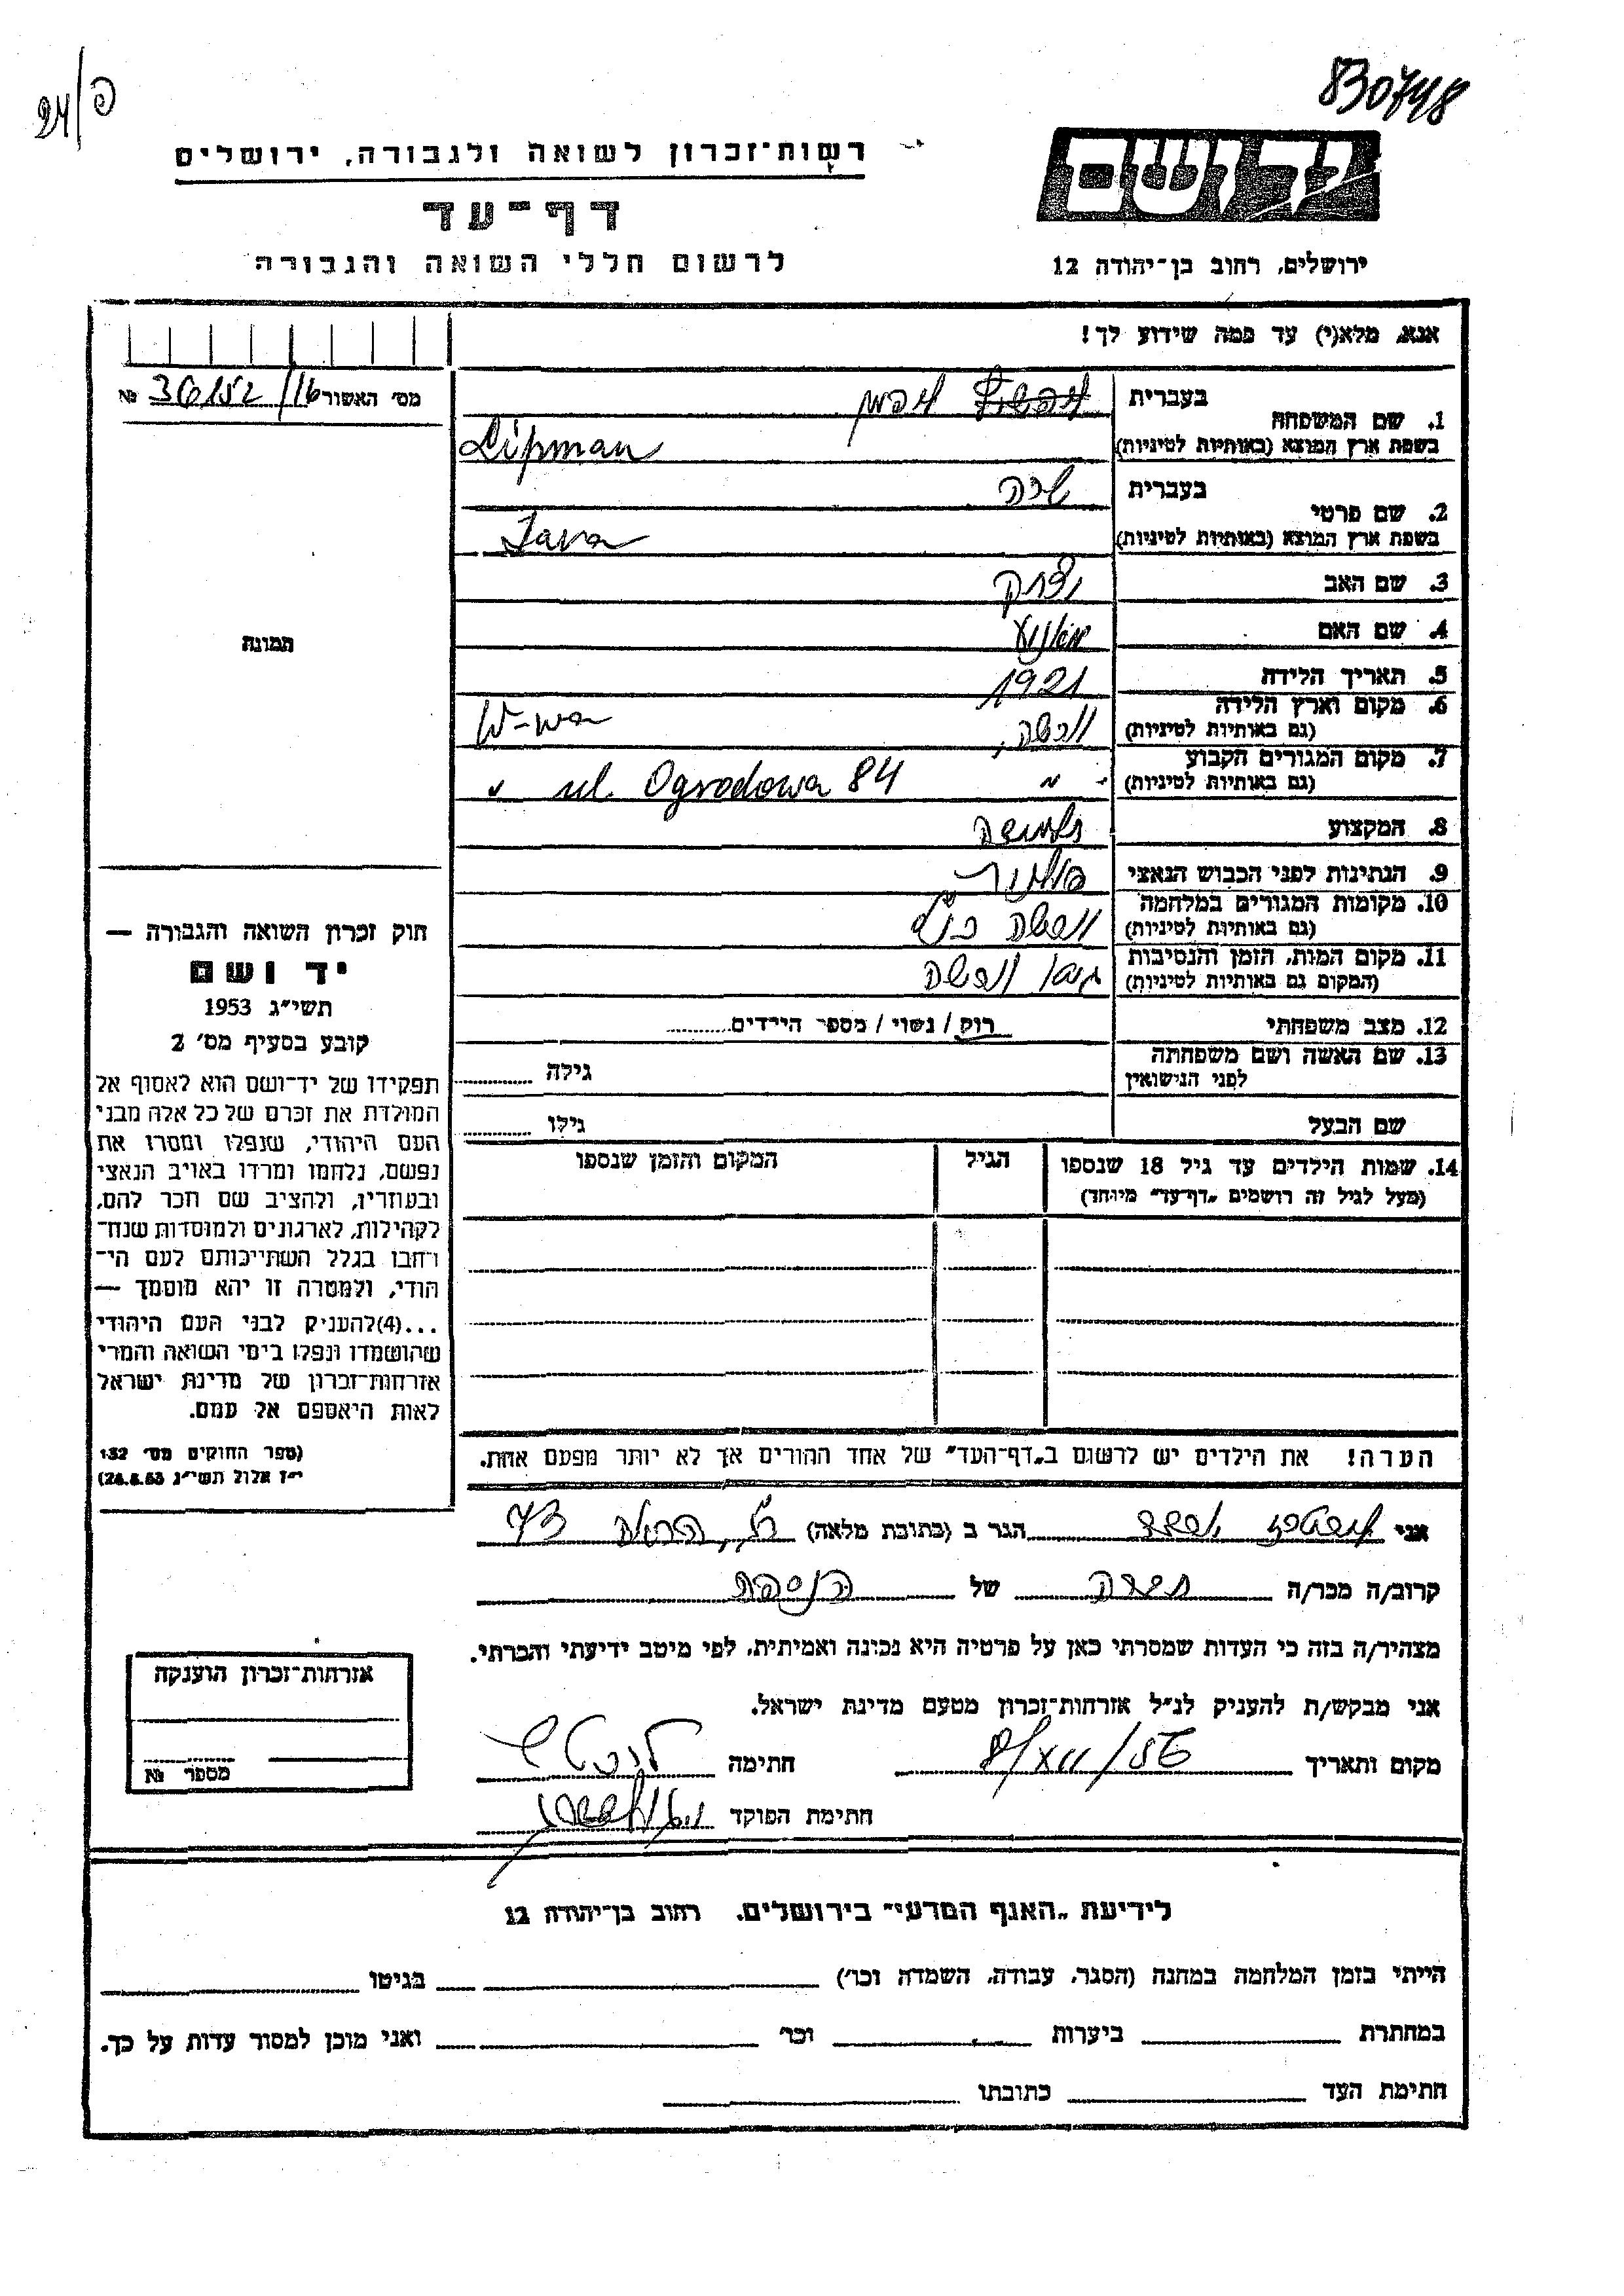 830748
רשות־זכרון לשואה ולגבורה, ירושלים
יד ושם
דף־עד
לרשום חללי השואה והגבורה
ירושלים, רחוב בן־יהודה 12
אנא, מלא(י) עד כמה שידוע לך!
מס׳ האשור 36152/16 №
1. שם המשפחה
בעברית ליפמן
בשפת ארץ המוצא (באותיות לטיניות) Lipman
2. שם פרטי
בעברית שרה
בשפת ארץ המוצא (באותיות לטיניות) Sara
3. שם האב יצחק
4. שם האם
5. תאריך הלידה 1921
6. מקום וארץ הלידה
(גם באותיות לטיניות) ורשה, W-wa
7. מקום המגורים הקבוע
(גם באותיות לטיניות) " ul. Ogrodowa 84
8. המקצוע
9. הנתינות לפני הכבוש הנאצי
10. מקומות המגורים במלחמה
(גם באותיות לטיניות) ורשה כנ"ל
11. מקום המות, הזמן והנסיבות
(המקום גם באותיות לטיניות) גיטו ורשה
12. מצב משפחתי רוק / נשוי / מספר הילדים
13. שם האשה ושם משפחתה
לפני הנישואין גילה
שם הבעל גילו
14. שמות הילדים עד גיל 18 שנספו הגיל המקום והזמן שנספו
(מעל לגיל זה רושמים „דף־עד" מיוחד)
הערה! את הילדים יש לרשום ב„דף־העד" של אחד ההורים אך לא יותר מפעם אחת.
תמונה
חוק זכרון השואה והגבורה —
יד ושם
תשי״ג 1953
קובע בסעיף מס׳ 2
תפקידו של יד־ושם הוא לאסוף אל
המולדת את זכרם של כל אלה מבני
העם היהודי, שנפלו ומסרו את
נפשם, נלחמו ומרדו באויב הנאצי
ובעוזריו, ולהציב שם וזכר להם,
לקהילות, לארגונים ולמוסדות שנח־
רבו בגלל השתייכותם לעם הי־
הודי, ולמטרה זו יהא מוסמך —
...(4)להעניק לבני העם היהודי
שהושמדו ונפלו בימי השואה והמרי
אזרחות־זכרון של מדינת ישראל
לאות היאספם אל עמם.
(ספר החוקים מס׳ 132
י״ז אלול תשי״ג 28.8.53)
אני הגר ב (כתובת מלאה)
קרוב/ה מכר/ה חברה של הנספה
מצהיר/ה בזה כי העדות שמסרתי כאן על פרטיה היא נכונה ואמיתית, לפי מיטב ידיעתי והכרתי.
אני מבקש/ת להעניק לנ״ל אזרחות־זכרון מטעם מדינת ישראל.
מקום ותאריך 8/XII/56 חתימה
חתימת הפוקד
אזרחות־זכרון הוענקה
מספר №
לידיעת „האגף המדעי" בירושלים, רחוב בן־יהודה 12
הייתי בזמן המלחמה במחנה (הסגר, עבודה, השמדה וכר׳) בגיטו
במחתרת ביערות וכר׳ ואני מוכן למסור עדות על כך.
חתימת העד כתובתו